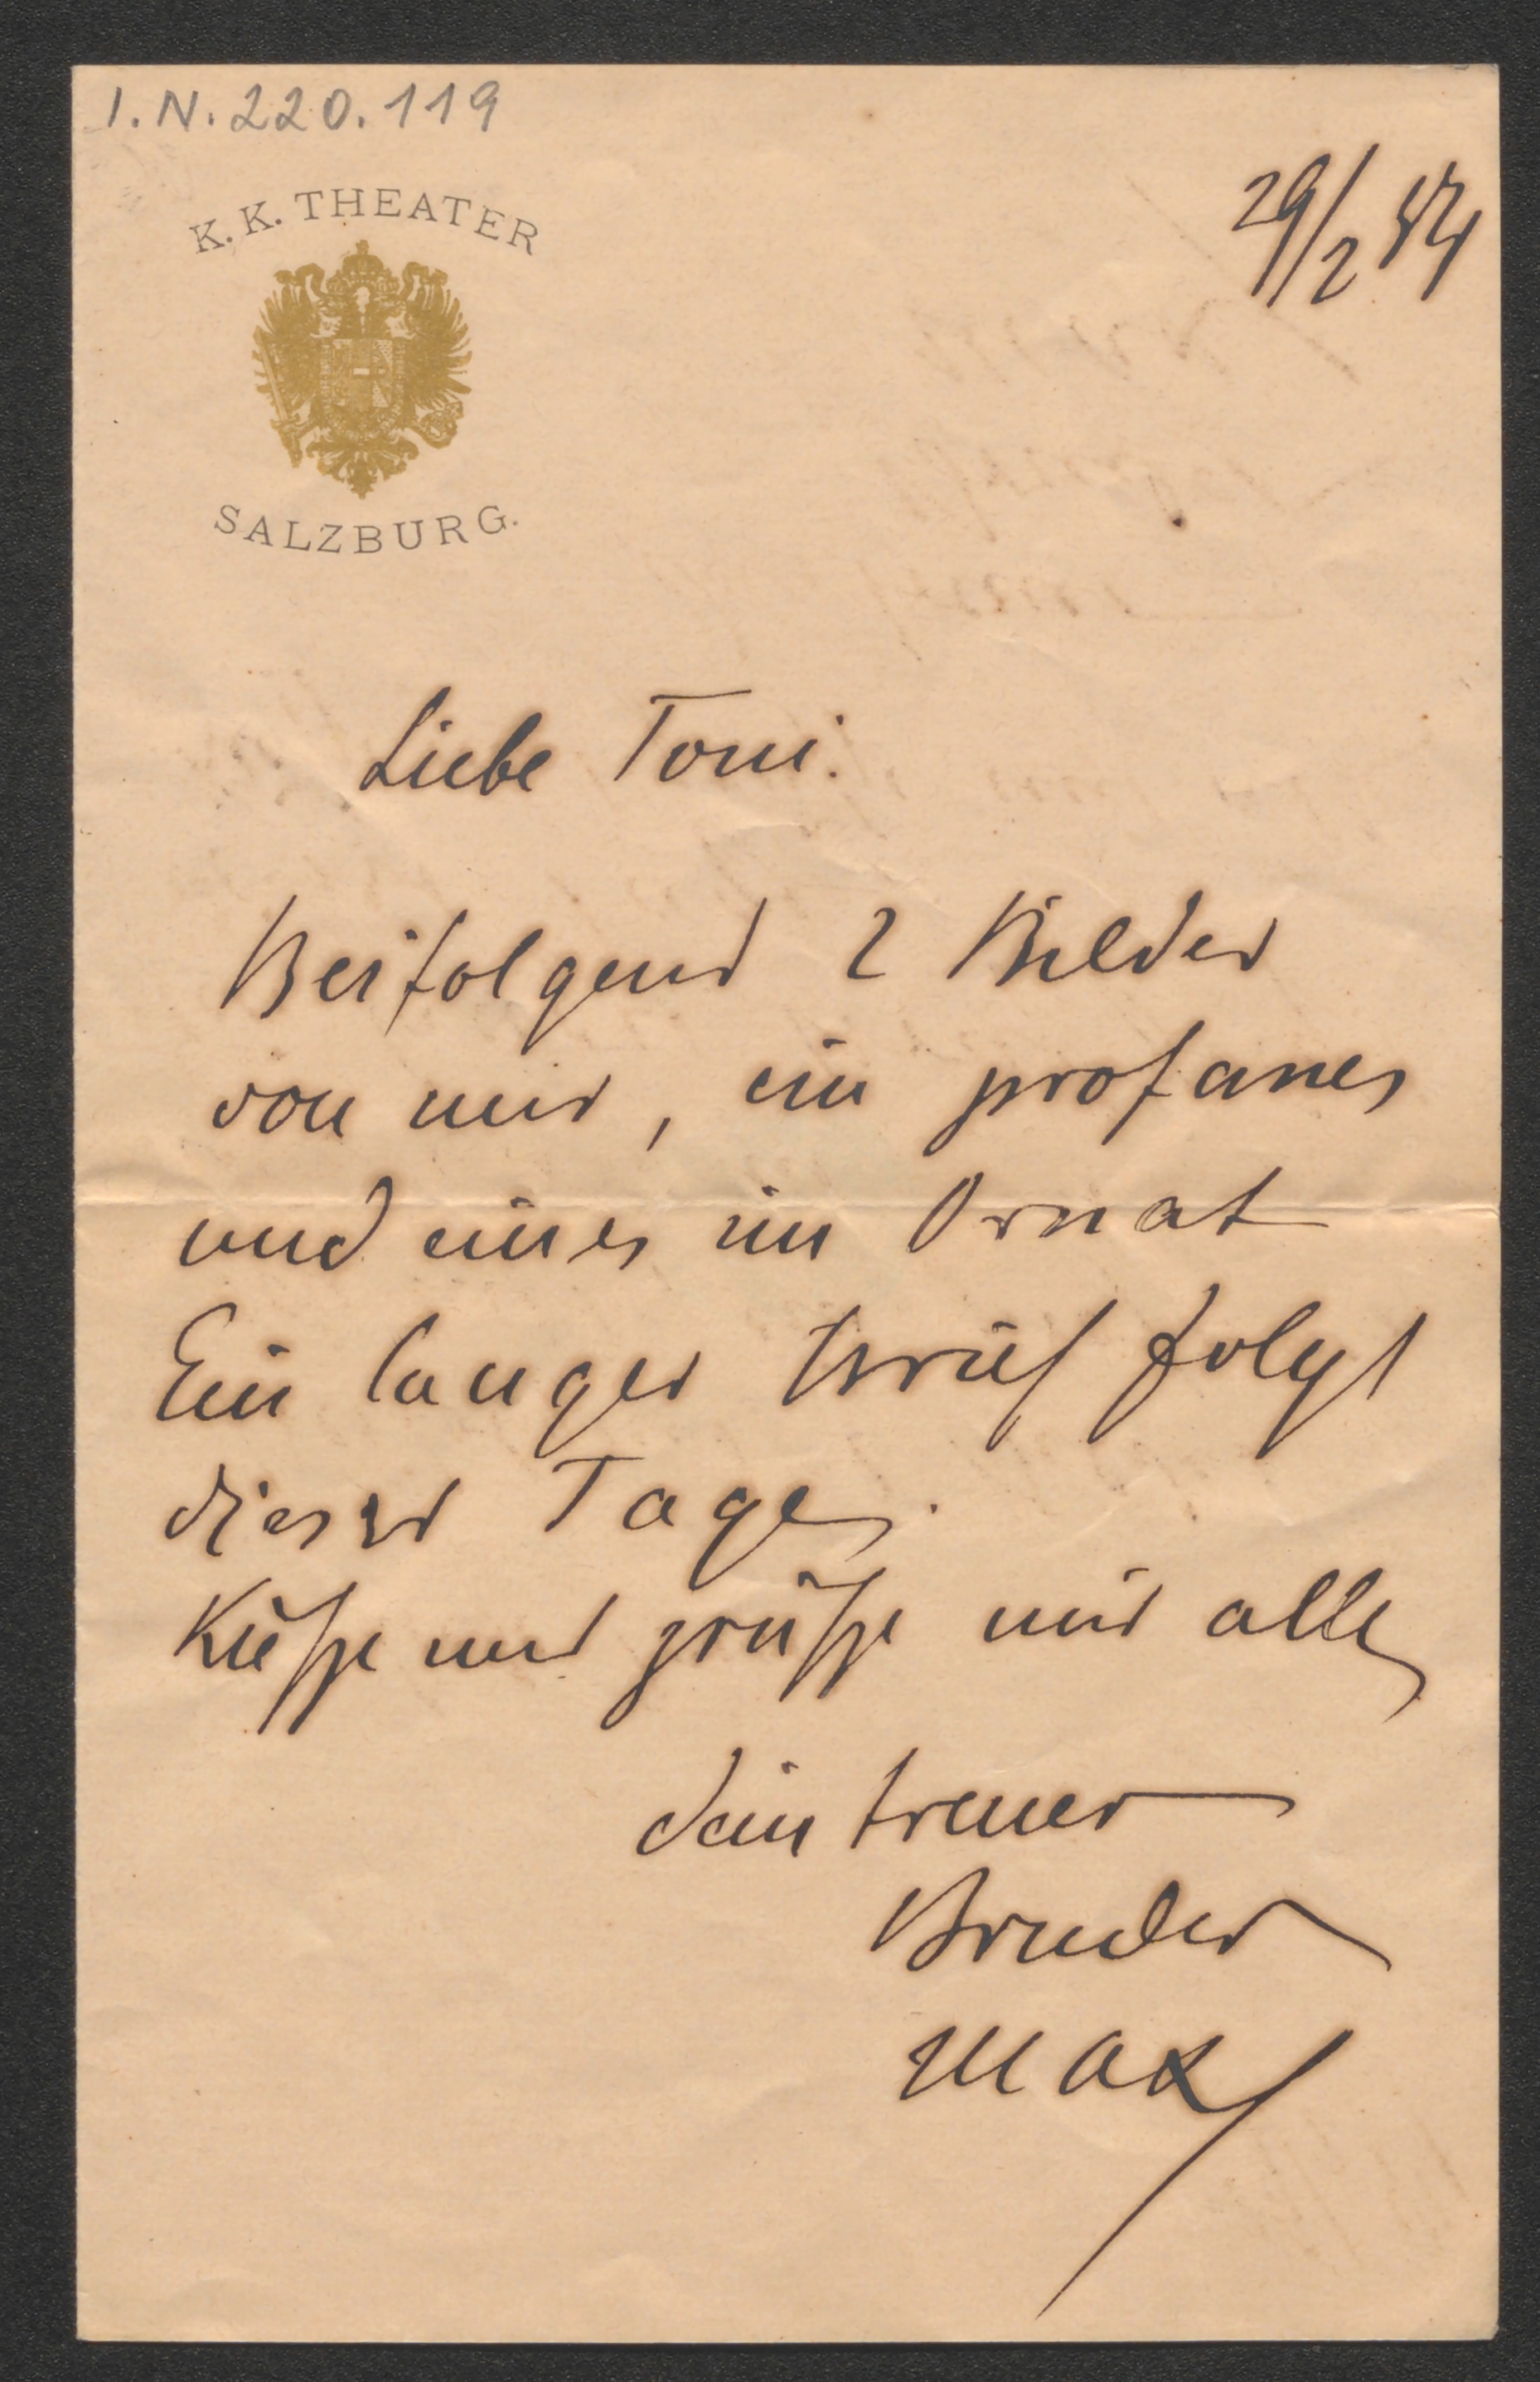 I.N.220.119
K.K. THEATER
SALZBURG.
29/2 84
Liebe Toni.
Beifolgend 2 Bilder
von mir, ein profanes
und eines im Ornat
Ein langer Brief folgt
dieser Tage.
Küsse und grüsse mir alle
dein treuer
Bruder
Max